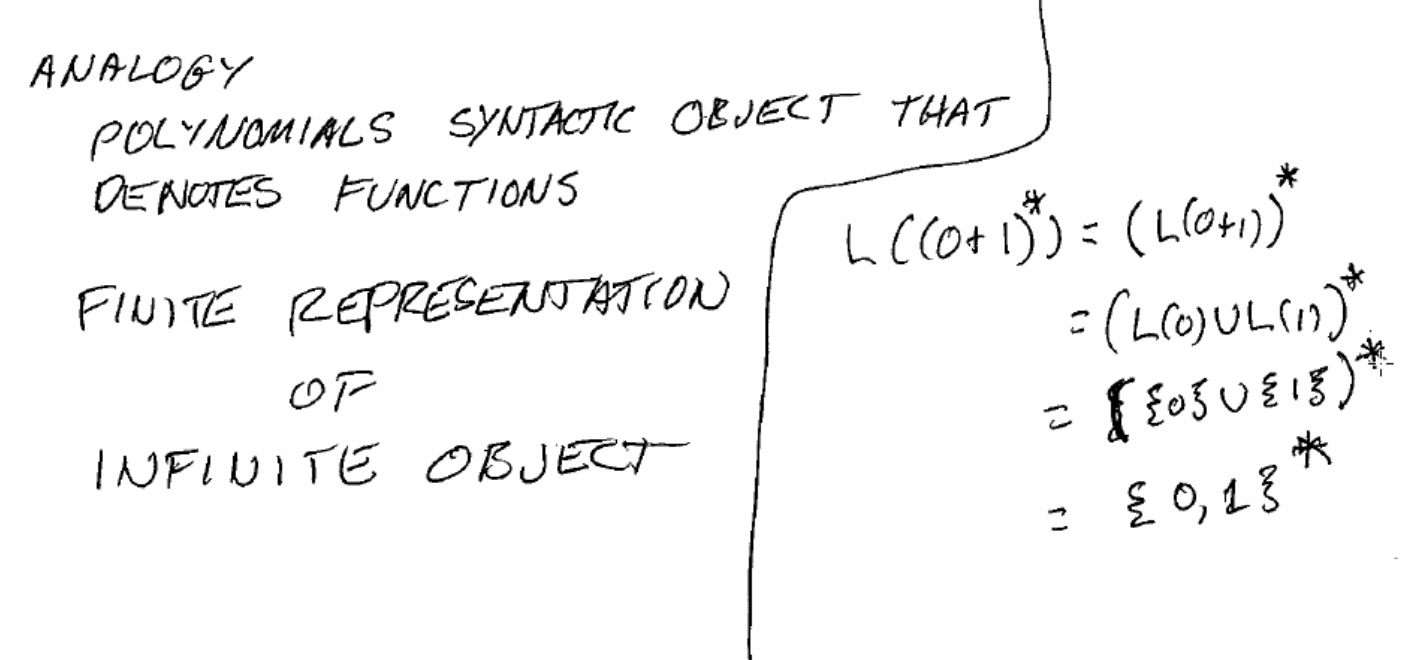 ANALOGY
POLYNOMIALS SYNTACTIC OBJECT THAT
DENOTES FUNCTIONS
FINITE REPRESENTATION
OF
INFINITE OBJECT
L((0+1)*) = (L(0+1))*
= (L(0)∪L(1))*
= ({0}∪{1})*
= {0,1}*